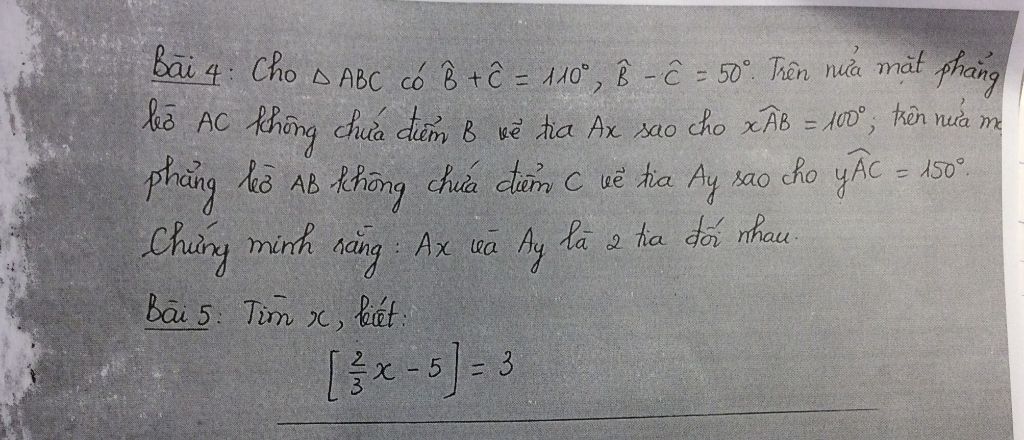 Bài 4: Cho △ ABC có B̂ + Ĉ = 110°, B̂ - Ĉ = 50°. Trên nửa mặt phẳng
bờ AC không chứa điểm B vẽ tia Ax sao cho xÂB = 100°; trên nửa
phẳng bờ AB không chứa điểm C vẽ tia Ay sao cho yÂC = 150°.
Chứng minh rằng: Ax và Ay là 2 tia đối nhau.
Bài 5: Tìm x, biết:
[2/3 x - 5] = 3